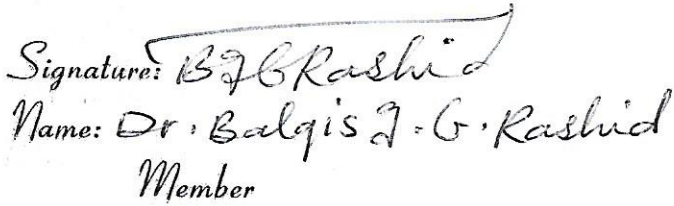 Signature: BJGRashid
Name: Dr. Balqis J. G. Rashid
Member